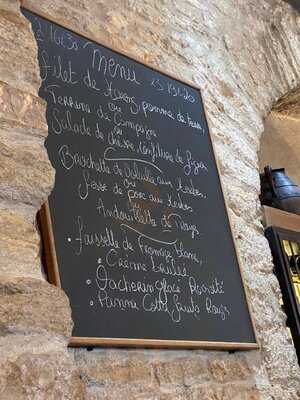 à 16€30 Menu à 23€/3€20
Filet de Hareng pomme de terre
ou
Terrine de Campagne
ou
Salade de chèvre, Confiture de figue
Brochette de Volaille aux herbes
ou
de porc aux herbes
ou
Andouillette de Troyes
• Faisselle de Fromage blanc,
Crème brûlée
• Vacherin glacé
• Panna Cotta fruits Rouges